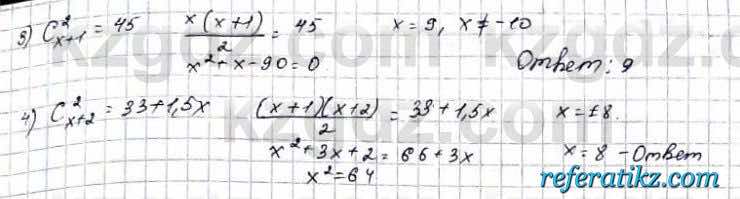 3) C²ₓ₊₁ = 45   x(x+1)/2 = 45   x = 9, x ≠ -10
x² + x - 90 = 0   Ответ: 9
4) C²ₓ₊₂ = 33 + 1,5x   (x+1)(x+2)/2 = 33 + 1,5x   x = ±8.
x² + 3x + 2 = 66 + 3x   x = 8 - Ответ
x² = 64
kzgdz.com
referatikz.com